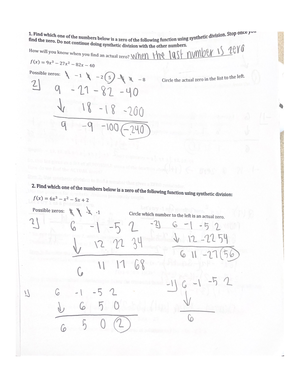 1. Find which one of the numbers below is a zero of the following function using synthetic division. Stop once you
find the zero. Do not continue doing synthetic division with the other numbers.
How will you know when you find an actual zero? when the last number is zero
f(x) = 9x³ − 27x² − 82x − 40
Possible zeros: −1 −2 5 −8 Circle the actual zero in the list to the left.
2] 9 -27 -82 -40
↓ 18 -18 -200
9 -9 -100 -240
2. Find which one of the numbers below is a zero of the following function using synthetic division:
f(x) = 6x³ − x² − 5x + 2
Possible zeros: -2 Circle which number to the left is an actual zero.
2] 6 -1 -5 2
↓ 12 22 34
6 11 17 68
-2] 6 -1 -5 2
↓ 12 -22 54
6 11 -27 56
1) 6 -1 -5 2
↓ 6 5 0
6 5 0 2
-1) 6 -1 -5 2
↓
6